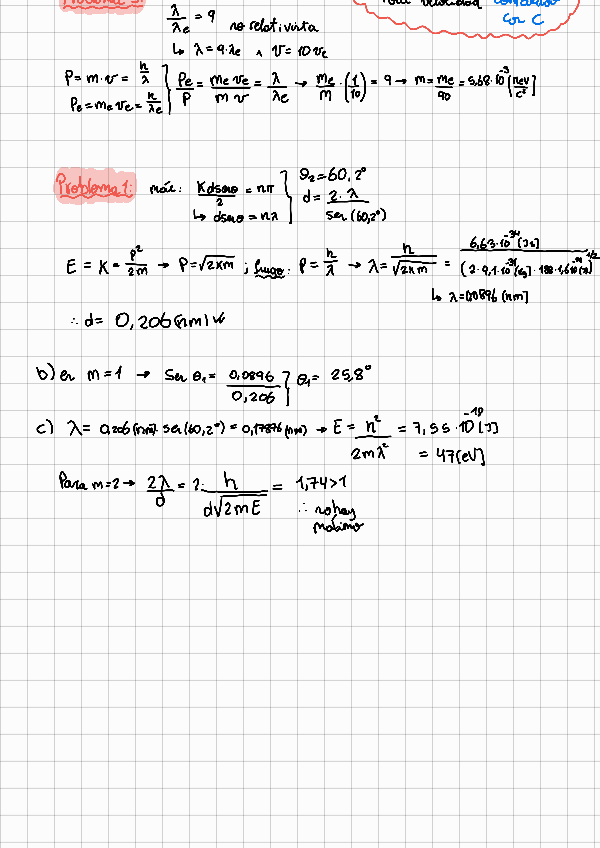 λ/λe = 9 no relativista
con C
↳ λ = 9·λe ∧ V = 10 Ve
P = m·v = h/λ
Pe = me ve = h/λe
Pe/P = me ve/m v = λ/λe → me/m·(1/10) = 9 → m = me/90 = 5,68·10⁻³ [MeV/c²]
Problema 1: máx: K d senθ/2 = nπ
↳ d senθ = nλ
θ₂ = 60,2°
d = 2·λ/sen(60,2°)
E = K = P²/2m → P = √2Km ; luego: P = h/λ → λ = h/√2Km = 6,63·10⁻³⁴ [Js]
↳ λ = 0,0896 [nm]
∴ d = 0,206 [nm]
b) en m = 1 → Sen θ₁ = 0,0896/0,206 } θ₁ = 25,8°
c) λ = 0,206 [nm] · sen(60,2°) = 0,17876 [nm] → E = h²/2mλ² = 7,55·10⁻¹⁸ [J]
= 47 [eV]
Para m = 2 → 2λ/d = 2· h/d√2mE = 1,74 > 1
∴ no hay
máximo